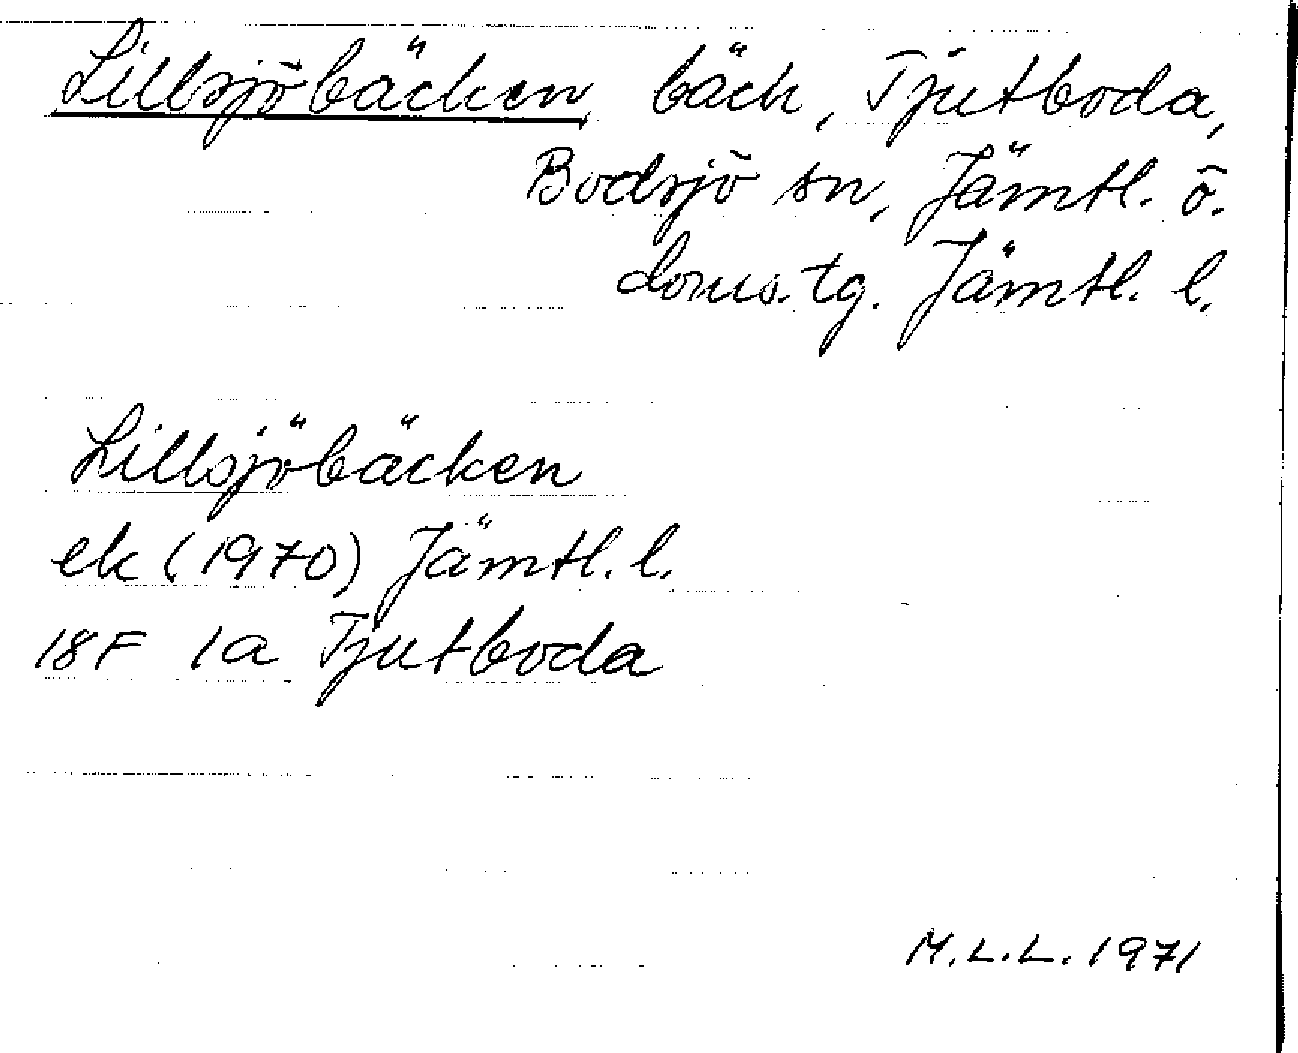 Lillsjöbäcken, bäck, Tjutboda,
Bodsjö sn, Jämtl. ö.
doms. tg. Jämtl. l.
Lillsjöbäcken
ek (1970) Jämtl. l.
18F 1a Tjutboda
M.L.L. 1971